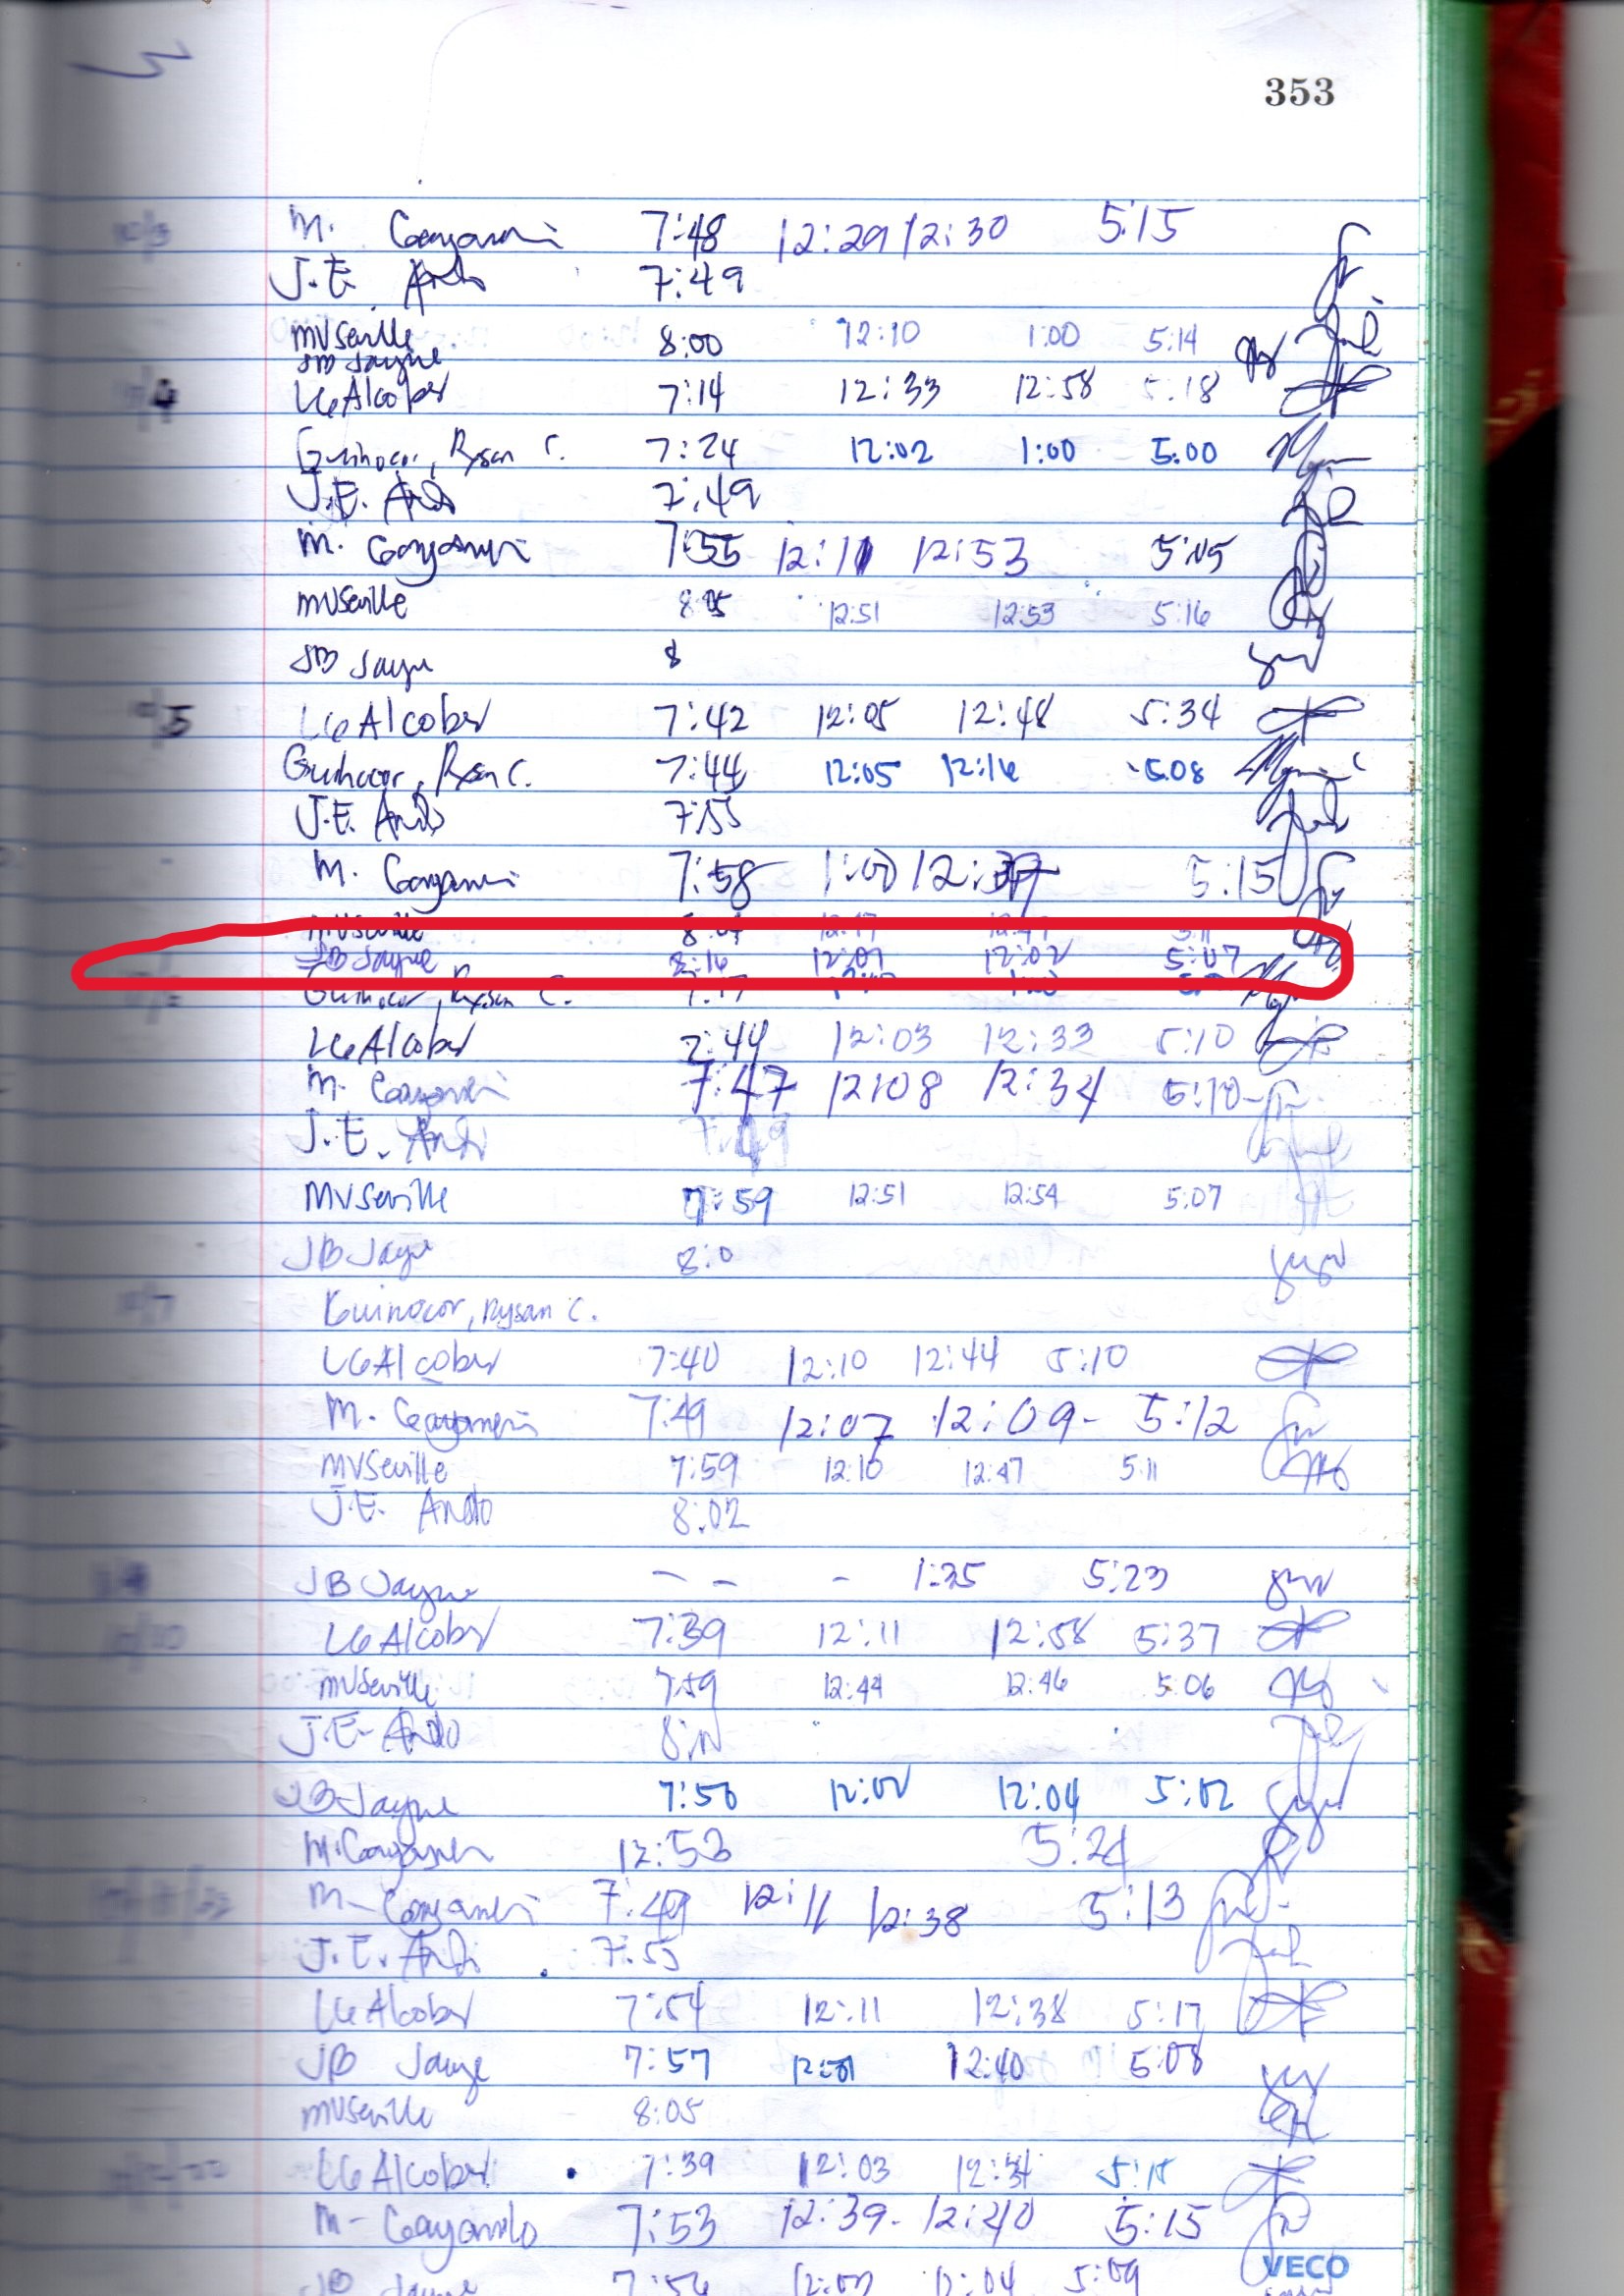 353
10/3 M. 7:48 12:29 12:30 5:15
J.E. Ando 7:49
MVSeville 8:00 12:10 1:00 5:14
JB Jayne
10/4 LGAlcober 7:14 12:33 12:58 5:18
Guinocor, Rysan C. 7:24 12:02 1:00 5:00
J.E. Ando 7:49
M. 7:55 12:11 12:53 5:05
MVSeville 12:51 12:53 5:16
JB Jayne 8
10/5 LGAlcober 7:42 12:05 12:48 5:34
Guinocor, Rysan C. 7:44 12:05 12:16 5:08
J.E. Ando 7:55
M. 7:58 1:00 5:15
MVSeville
JB Jayne 8:16 12:01 12:02 5:07
Guinocor, Rysan C.
LGAlcober 7:44 12:03 12:33 5:10
M. 7:47 12:08 12:34 5:10
J.E. Ando 7:49
MVSeville 7:59 12:51 12:54 5:07
JB Jayne 8:0
10/7 Guinocor, Rysan C.
LGAlcober 7:40 12:10 12:44 5:10
M. 7:49 12:07 12:09- 5:12
MVSeville 7:59 12:10 12:47 5:11
J.E. Ando 8:02
JB Jayne - - - 1:35 5:23
10/10 LGAlcober 7:39 12:11 12:58 5:37
MVSeville 7:59 12:44 12:46 5:06
J.E. Ando
JB Jayne 7:50 12:02 12:04 5:02
M. 12:53 5:24
M. 7:49 12:11 12:38 5:13
J.E. Ando 7:55
LGAlcober 7:54 12:11 12:38 5:17
JB Jayne 7:57 12:01 12:40 5:08
MVSeville 8:05
LGAlcober 7:39 12:03 12:34 5:15
M- 7:53 12:39- 12:40 5:15
VECO
JB Jayne 7:56 12:04 5:09